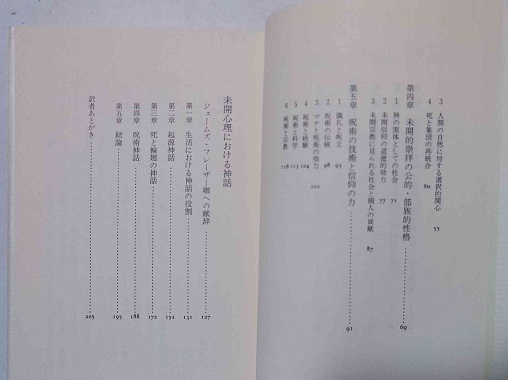 3 人間の自然に対する選択的関心 55
4 死と集団の再統合 60
第四章 未開的崇拝の公的・部族的性格 69
1 神の実体としての社会 71
2 未開信仰の道徳的効力 77
3 未開宗教に見られる社会と個人の貢献 87
第五章 呪術の技術と信仰の力 91
1 儀礼と呪文 93
2 呪術の伝統 98
3 マナと呪術の効力 102
4 呪術と経験 104
5 呪術と科学 113
6 呪術と宗教 118
未開心理における神話
ジェームズ・フレーザー卿への献辞 127
第一章 生活における神話の役割 131
第二章 起源神話 152
第三章 死と輪廻の神話 172
第四章 呪術神話 188
第五章 結論 193
訳者あとがき 205